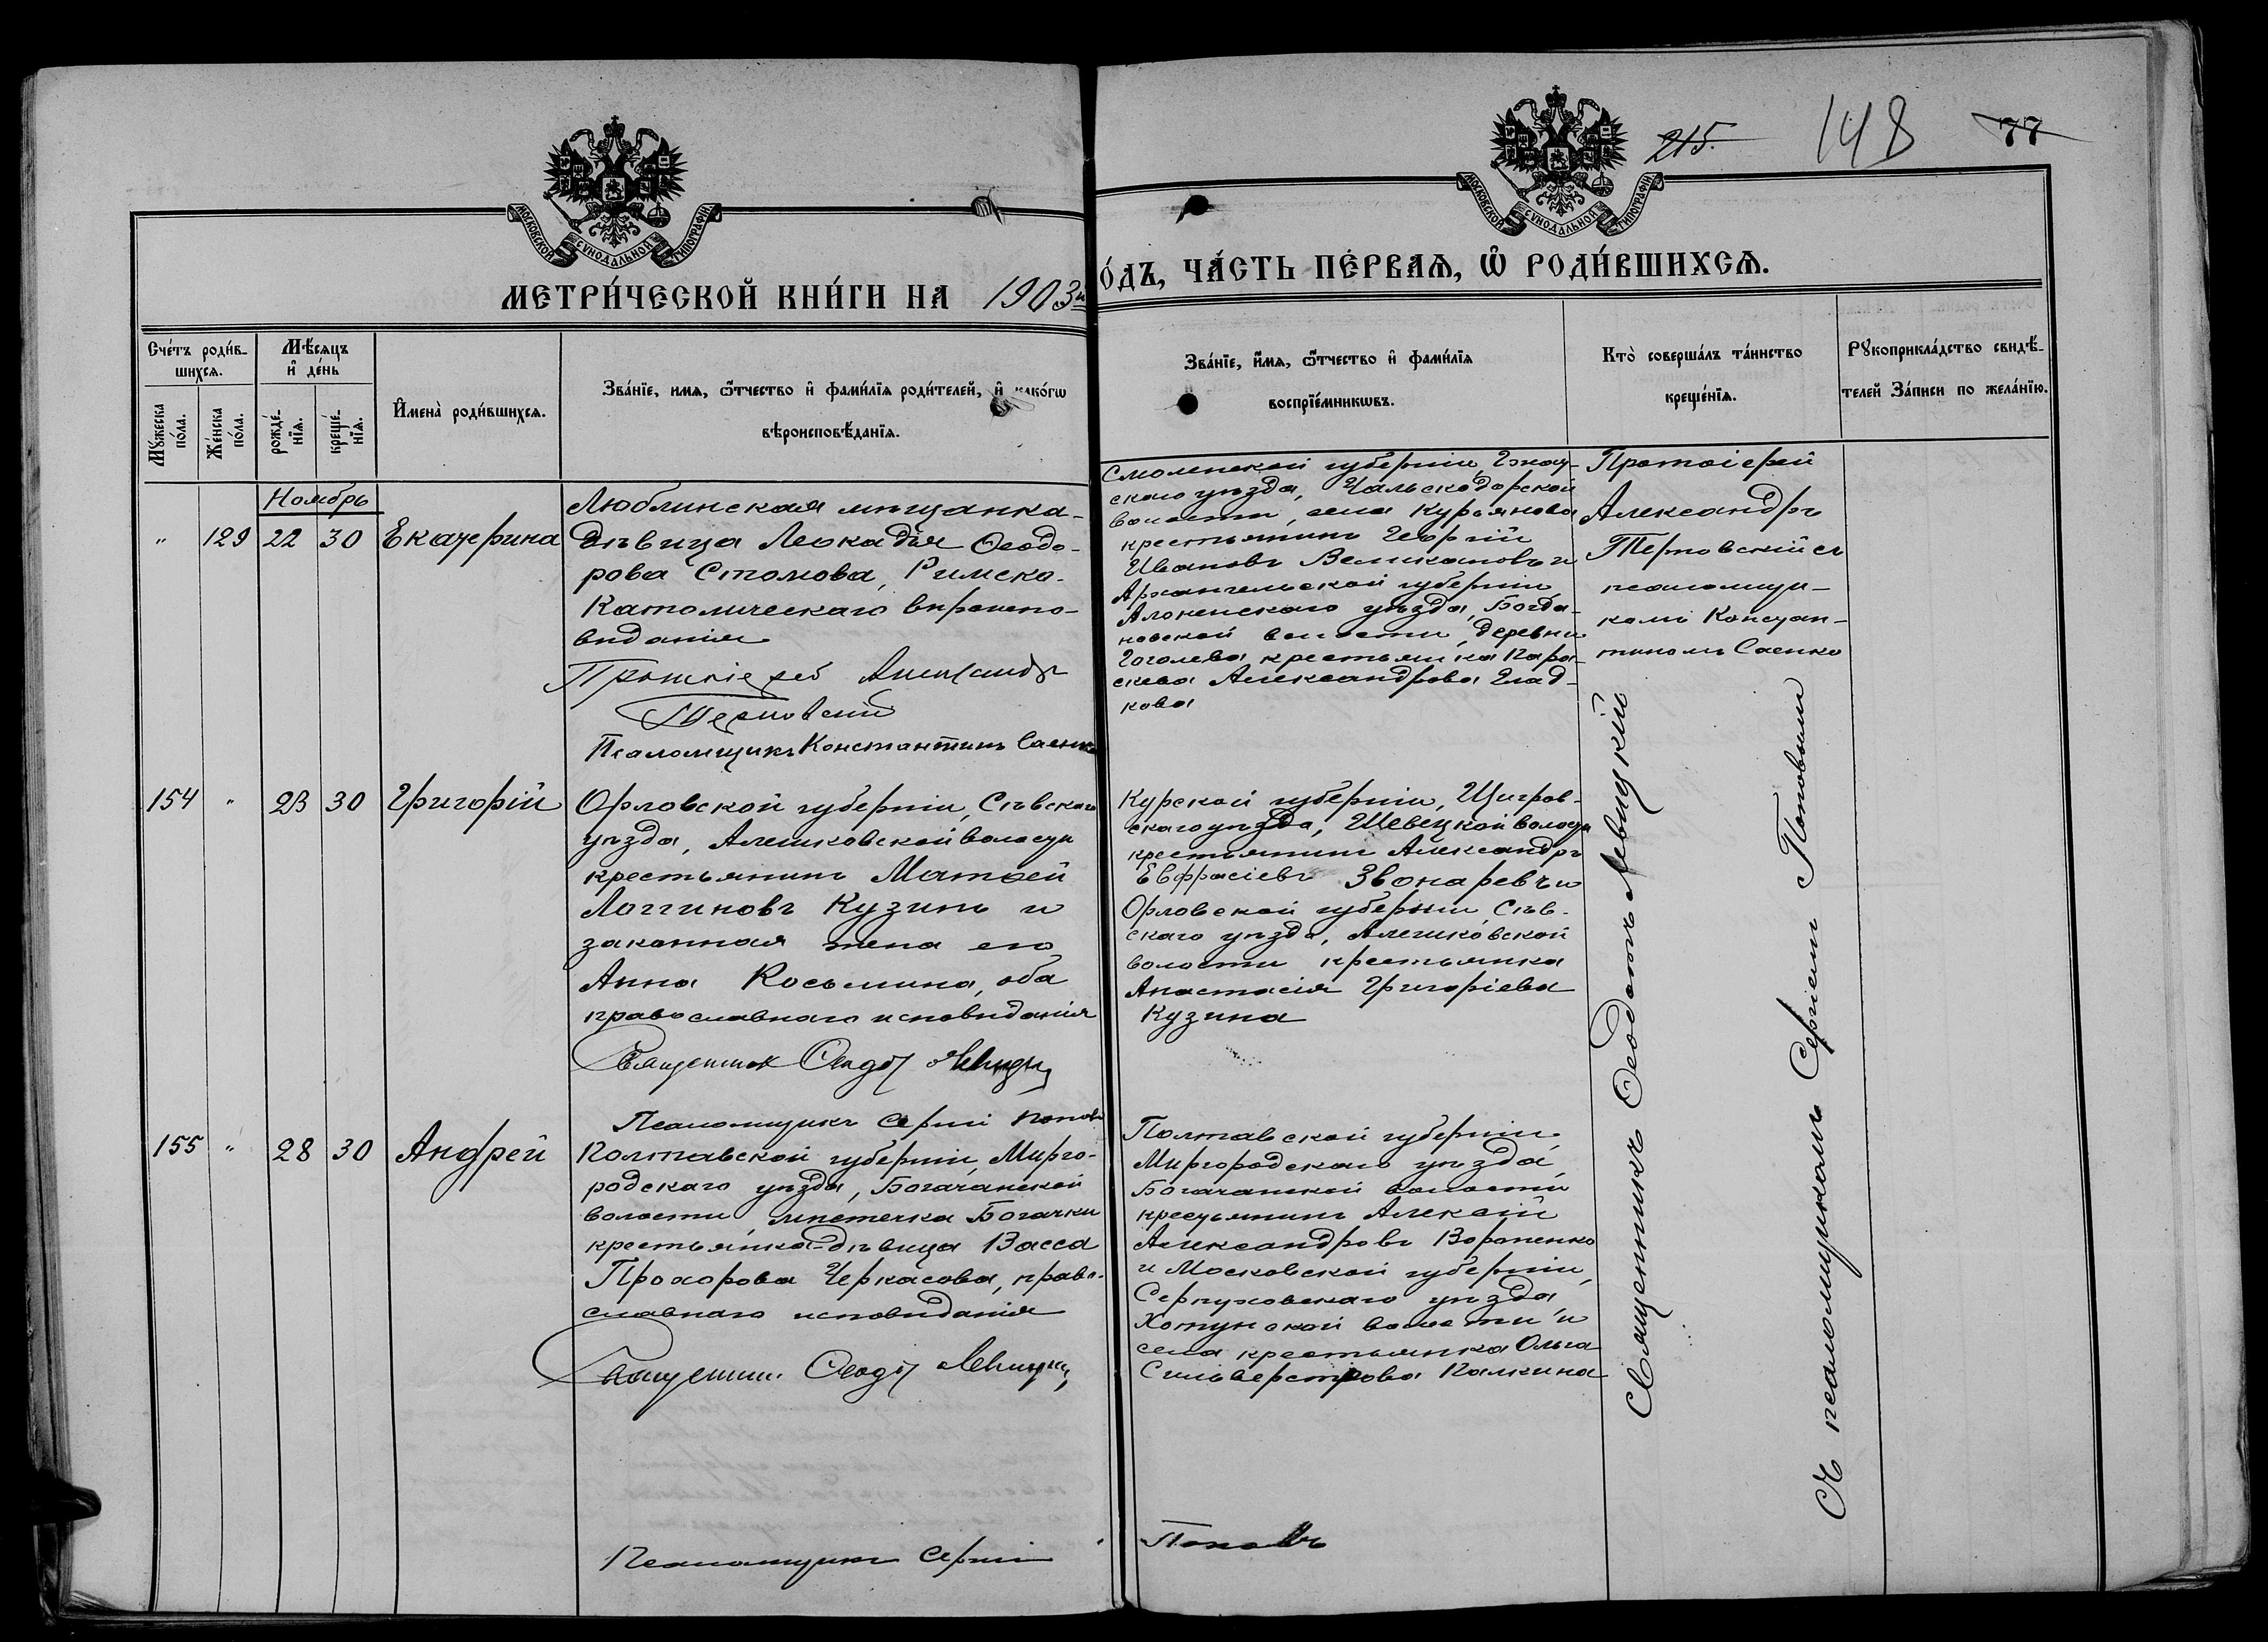 215.
148
77
МОСКОВСКОЙ СУНОДАЛЬНОЙ ТИПОГРАФІИ
МОСКОВСКОЙ СУНОДАЛЬНОЙ ТИПОГРАФІИ
МЕТРИ́ЧЕСКОЙ КНИ́ГИ НА 1903й
О́ДЪ, ЧА́СТЬ ПЕ́РВАѦ, Ѡ РОДИ́ВШИХСѦ.
Сче́тъ роди́в-
шихсѧ.
Мꙋжеска по́ла.
Же́нска по́ла.
Мѣ́сѧцъ
и де́нь
рожде́-
нїѧ.
креще́-
нїѧ.
Имена̀ роди́вшихсѧ.
Зва́нїе, имѧ, ѿтчество и фами́лїѧ роди́телей, и како́гѡ
вѣроисповѣ́данїѧ.
Зва́нїе, и́мѧ, ѿтчество и фами́лїѧ
воспрїе́мникѡвъ.
Кто̀ соверша́лъ та́инство
креще́нїѧ.
Рꙋкоприкла́дство свидѣ́-
телей за́писи по жела́нїю.
Ноябрь
" 129 22 30 Екатерина
Люблинская мѣщанка-
дѣвица Леокадья Ѳеодо-
рова Стомова, Римско-
Католическаго вѣроиспо-
вѣданія
Протоіерей Александръ
Терновскій
Псаломщикъ Константинъ Саенко
Смоленской губерніи, Гжат-
скаго уѣзда,
волости, села Курьянова
крестьянинъ Георгій
Ивановъ Великановъ и
Архангельской губерніи
уѣзда, Богда-
новской волости, деревни
Гоголева крестьянка Пара-
скева Александрова Глад-
кова
Протоіерей
Александръ
Терновскій съ
псаломщи-
комъ Констан-
тиномъ Саенко
154 " 23 30 Григорій
Орловской губерніи, Сѣвскаго
уѣзда, Алешковской волости
крестьянинъ Матѳей
Логгиновъ Кузинъ и
законная жена его
Анна Косьмина, оба
православнаго исповѣданія
Священникъ Ѳеодотъ Левицкій
Псаломщикъ Сергій Поповъ
Курской губерніи, Щигров-
скаго уѣзда, Шевецкой волости
крестьянинъ Александръ
Евфрасіевъ Звонаревъ и
Орловской губерніи, Сѣв-
скаго уѣзда, Алешковской
волости крестьянка
Анастасія Григоріева
Кузина
155 " 28 30 Андрей
Полтавской губерніи, Мирго-
родскаго уѣзда, Богачанской
волости, мѣстечка Богачки
крестьянка-дѣвица Васса
Прохорова Черкасова, право-
славнаго исповѣданія
Священникъ Ѳеодотъ Левицкій
Псаломщикъ Сергій Поповъ
Полтавской губерніи
Миргородскаго уѣзда,
Богачанской волости
крестьянинъ Алексій
Александровъ Вороненко
и Московской губерніи,
Серпуховскаго уѣзда
Хотунской волости и
села крестьянка Ольга
Сильверстрова Палкина
Священникъ Ѳеодотъ Левицкій
Съ псаломщикомъ Сергіемъ Поповымъ